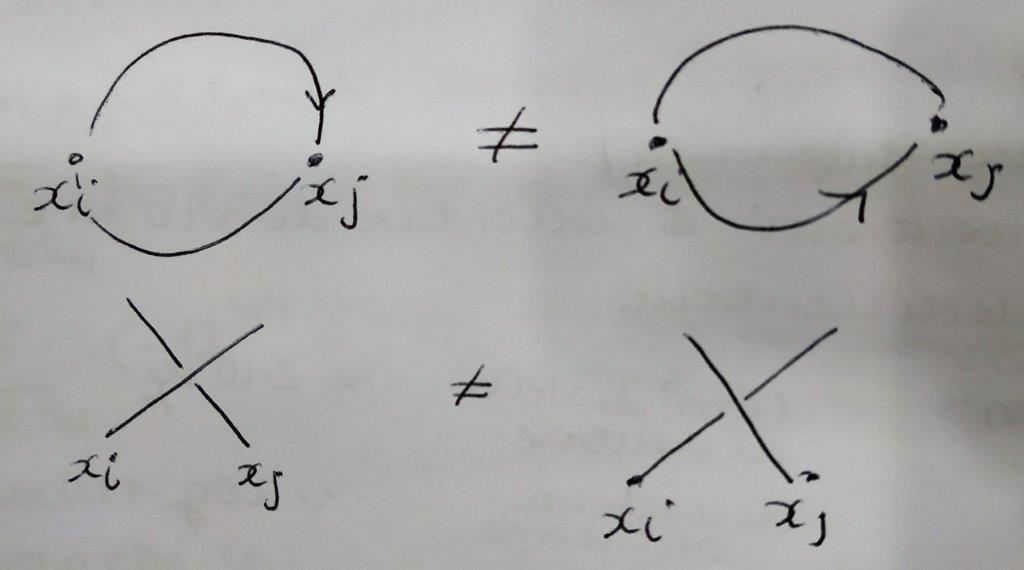 ≠
xi xj xi xj
≠
xi xj xi xj